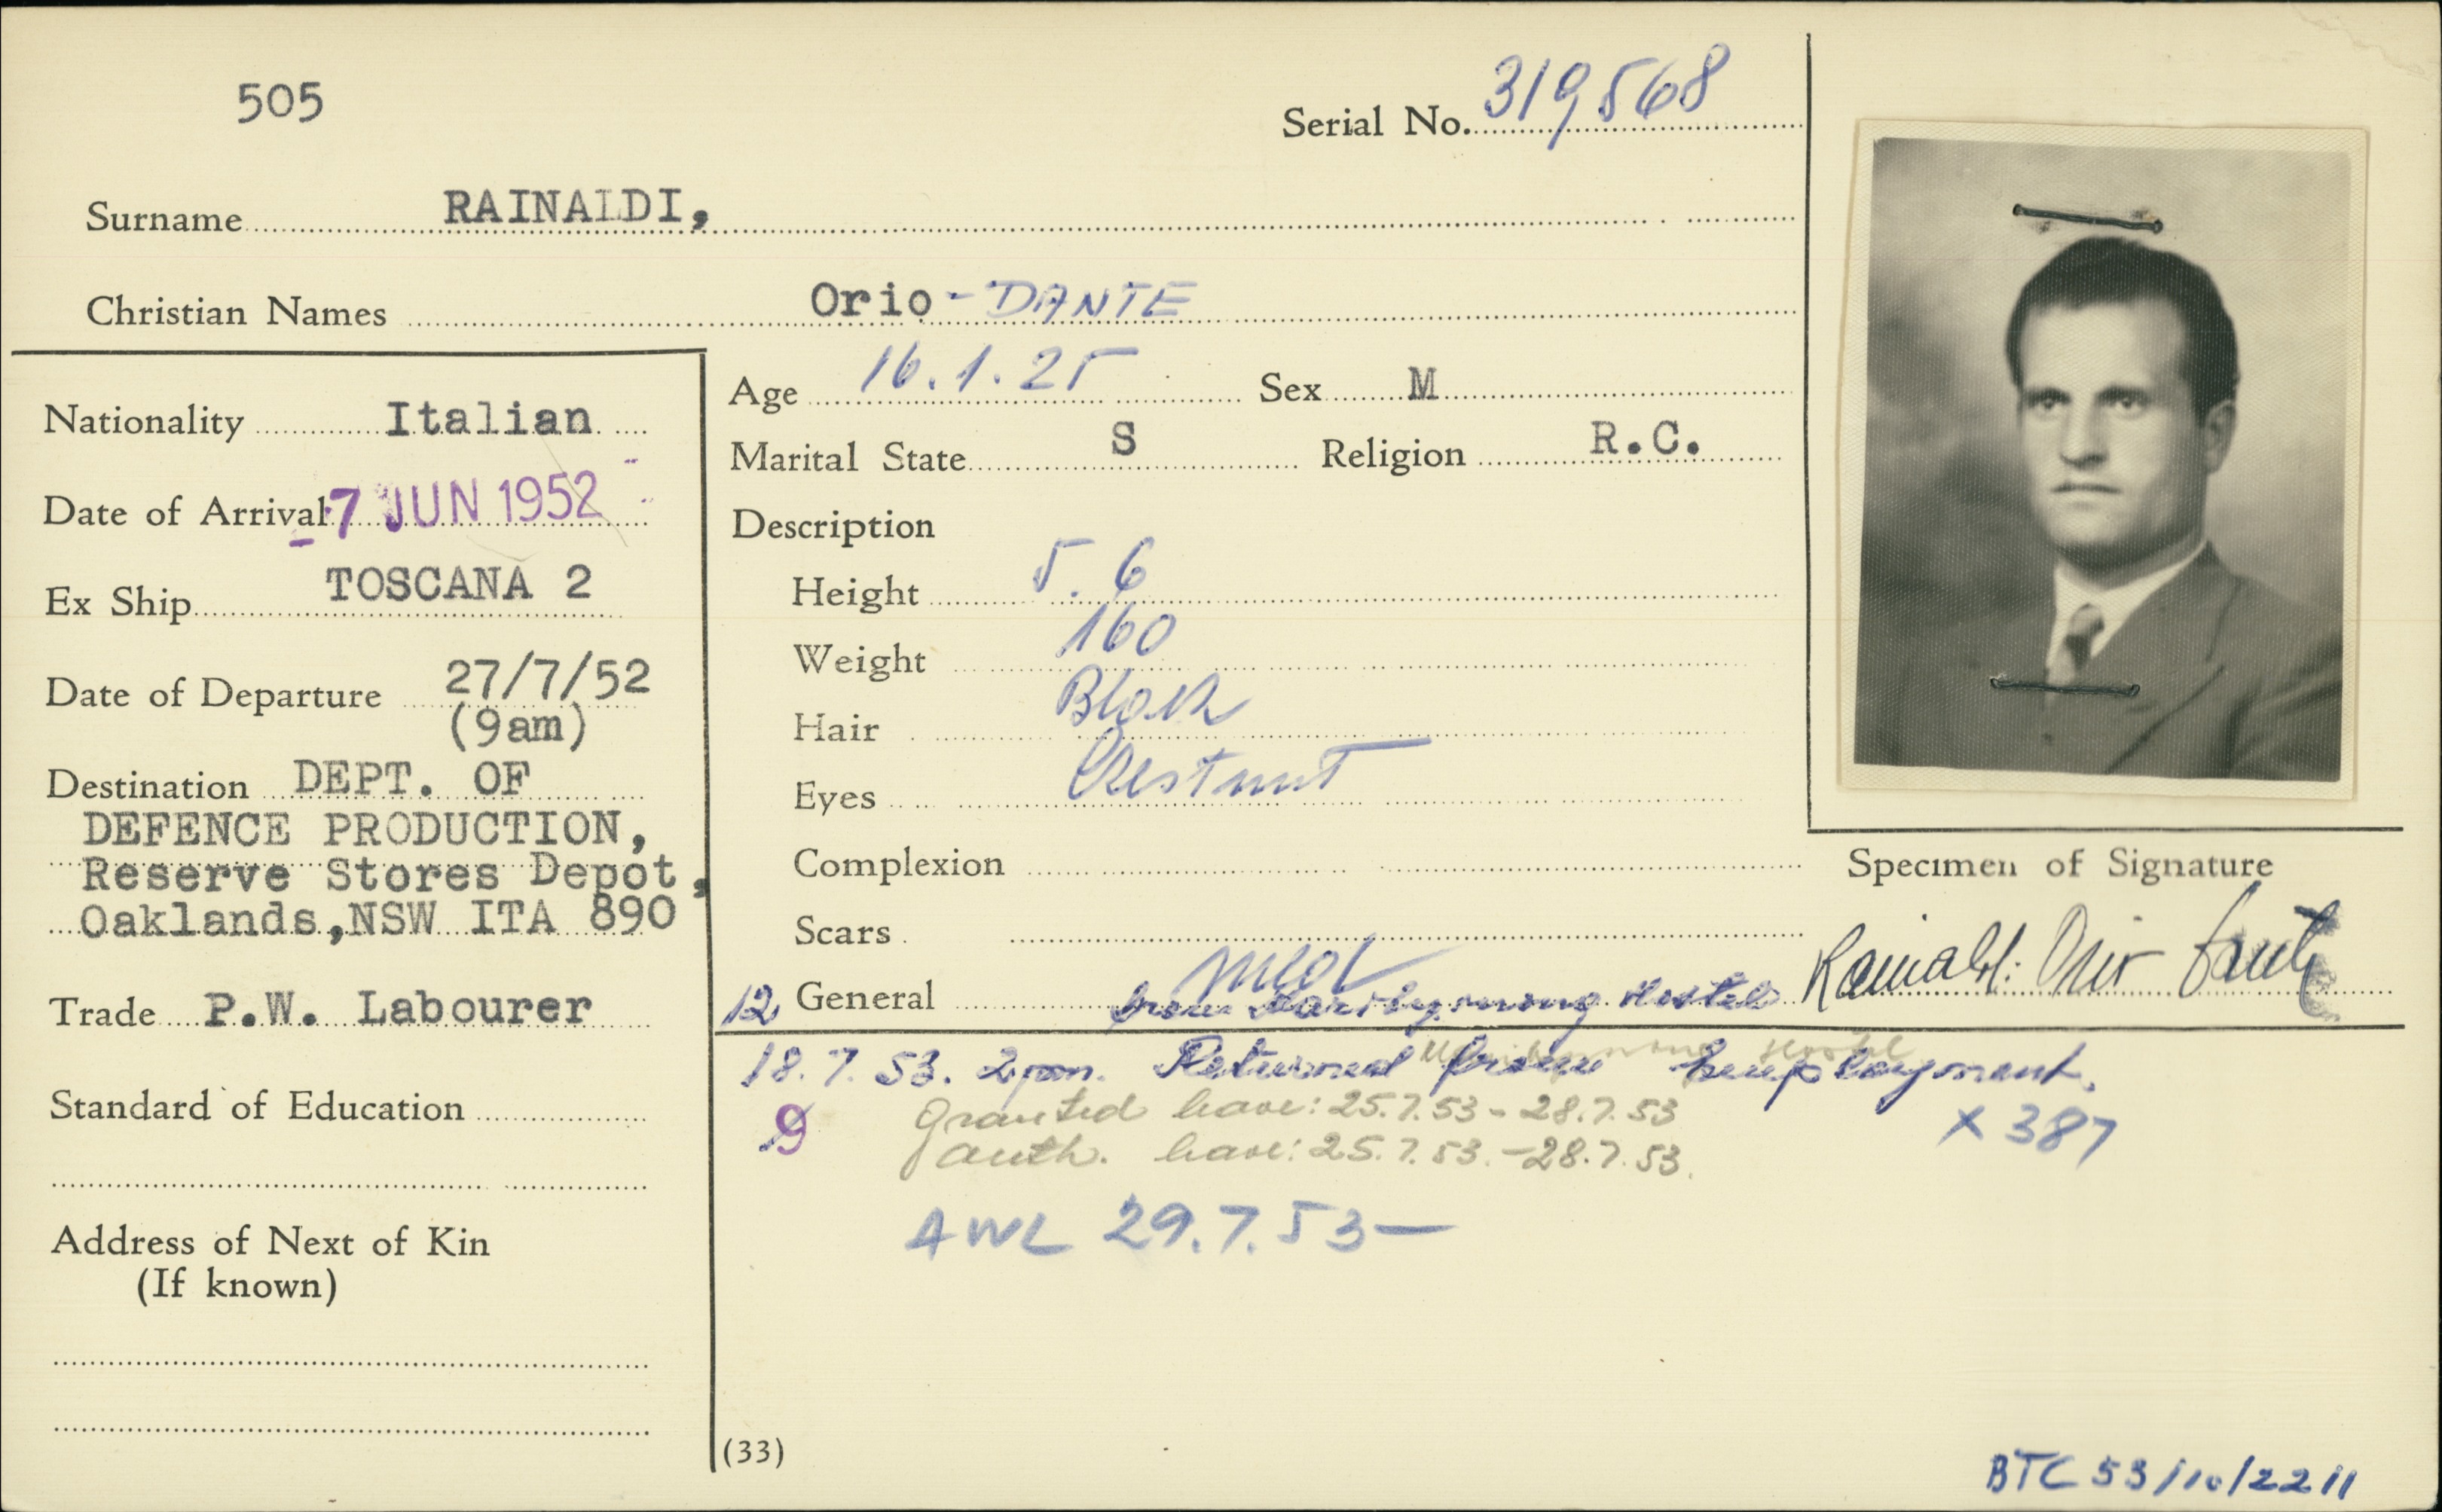 505
Serial No. 319568
Surname RAINALDI,
Christian Names Orio - DANTE
Nationality Italian
Date of Arrival -7 JUN 1952
Ex Ship TOSCANA 2
Date of Departure 27/7/52
(9am)
Destination DEPT. OF
DEFENCE PRODUCTION,
Reserve Stores Depot,
Oaklands,NSW ITA 890
Trade P.W. Labourer
Standard of Education
Address of Next of Kin
(If known)
Age 16.1.25 Sex M
Marital State S Religion R.C.
Description
Height 5.6
Weight 160
Hair Black
Eyes Chestnut
Complexion
Scars
12 General
from Maribyrnong Hostel
Specimen of Signature
Rainaldi Orio Dante
18.7.53. 2pm. Returned from Employment.
9 Granted leave: 25.7.53 - 28.7.53
X 387
auth. leave: 25.7.53. - 28.7.53.
AWL 29.7.53 —
(33)
BTC 53/10/2211